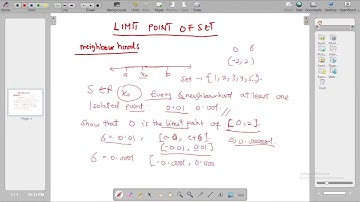 LIMIT POINT OF SET
neighbourhoods
0 6
(-2,2)
a x₀ b
Set → {1,2,3,4,5}
S ∈ R x₀ Every δ neighbourhood at least one
Isolated point 0.01 0.001
Show that 0 is the limit point of [0,2].
δ = 0.01, 0,0.000001
[-0.01, 0.01]
δ = 0.001 [-0.001, 0.001